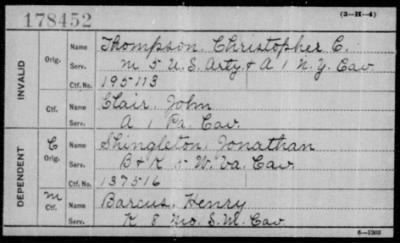 178452
(3-H-4)
INVALID
Orig. Name Thompson, Christopher C.
Serv. M 5 U.S. Arty. & A 1 N.Y. Cav.
Ctf. No. 195113
Ctf. Name Clair, John
Serv. A 1 Pa. Cav.
DEPENDENT
C Orig. Name Shingleton, Jonathan
Serv. B & K 5 W. Va. Cav.
Ctf. No. 137516
M Ctf. Name Barcus, Henry
Serv. K 8 Mo. S.M. Cav.